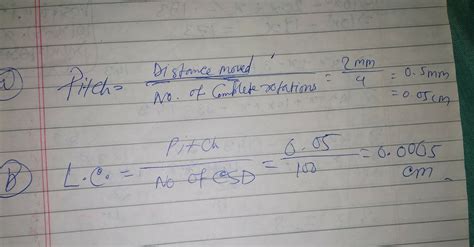 a) Pitch = Distance moved / No. of Complete rotations = 2mm / 4 = 0.5mm
= 0.05cm
B) L.C. = Pitch / No of CSD = 0.05 / 100 = 0.0005
cm